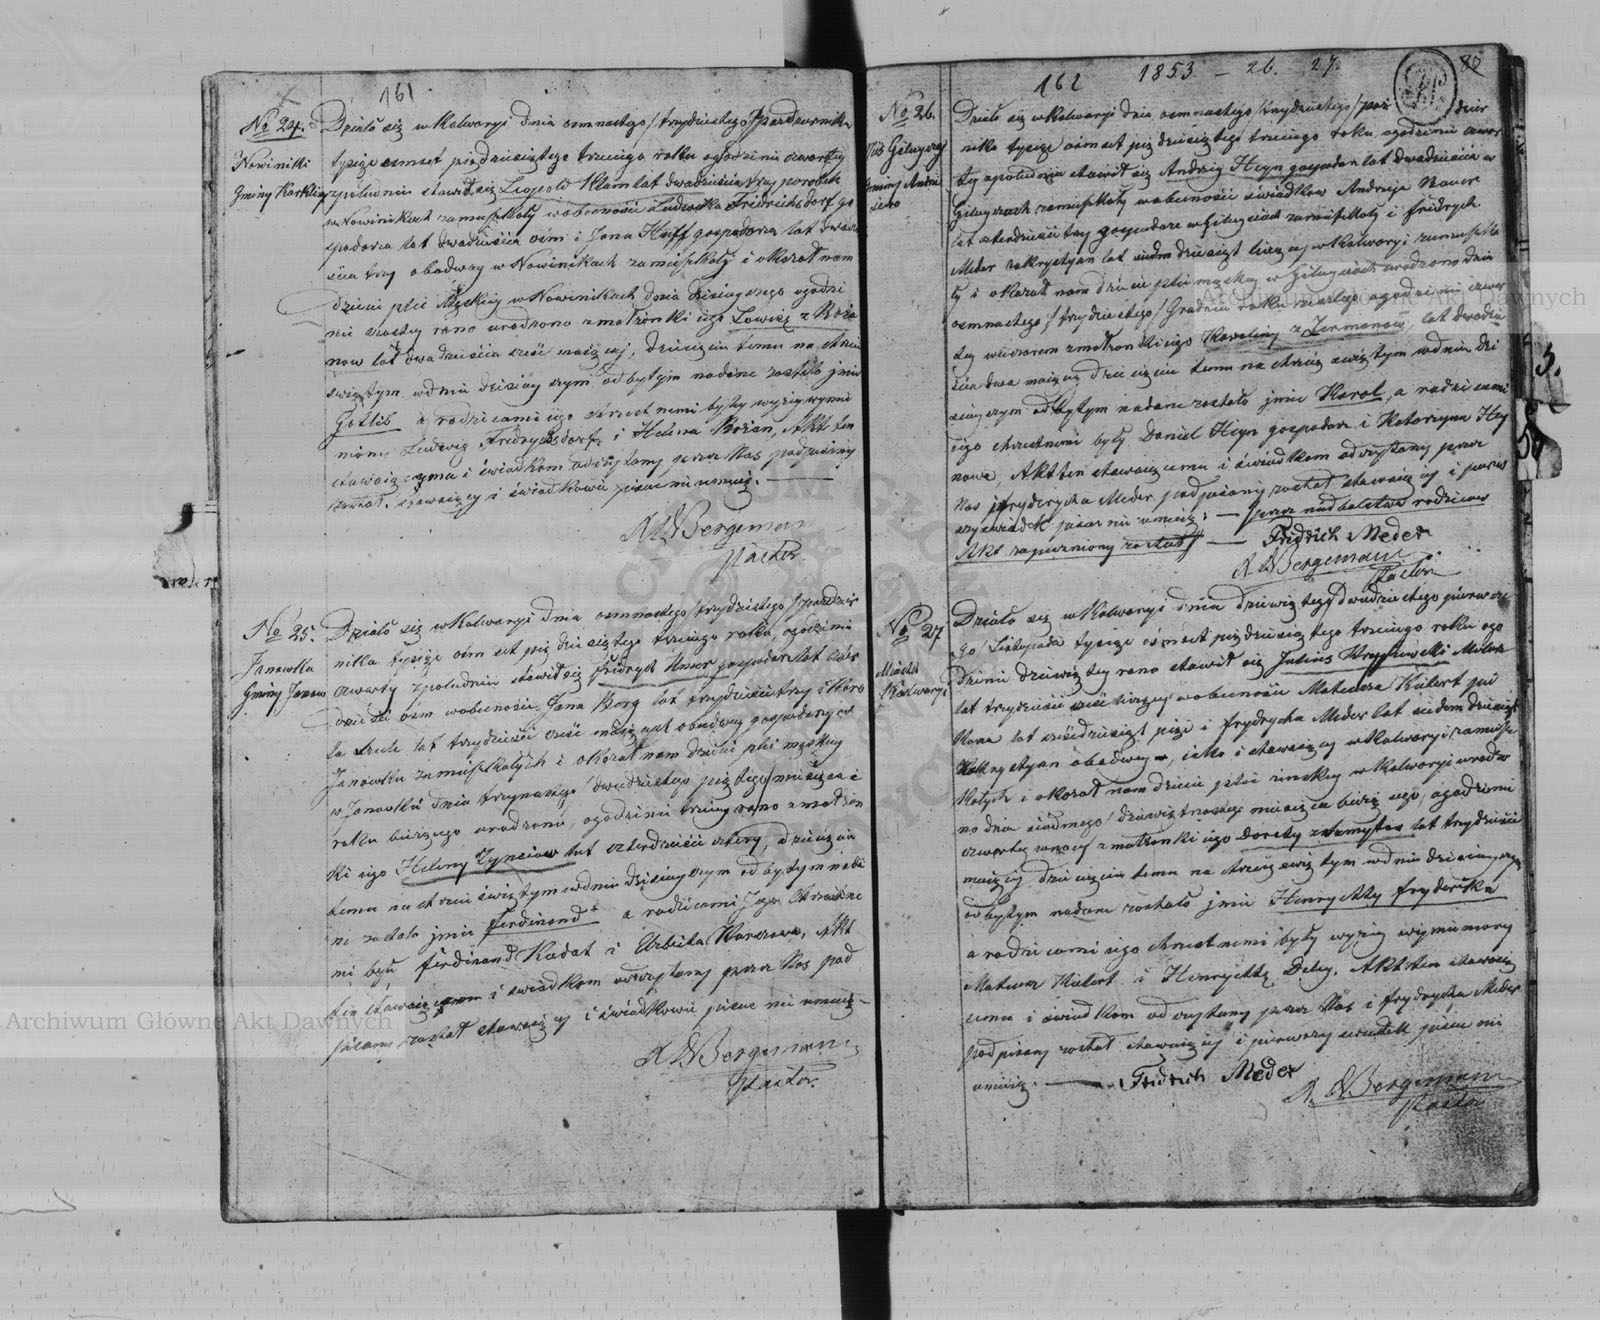 161
No 24.
Nowinikki
Gminy Karkliny
Działo się w Kalwaryi dnia osmnastego /trzydziestego/ Października
tysiąc osmset pięćdziesiątego trzeciego roku o godzinie czwartey
z południa stawił się Leopold Klam lat dwadzieścia trzy parobek
w Nowinikach zamieszkały w obecności Ludwika Fridrichsdorf go
spodarza lat dwadzieścia ośm i Jana Huff gospodarza lat dwadzie
ścia trzy obadway w Nowinikach zamieszkałych i okazał nam
dziecie płci Męzkiey w Nowinikach dnia dzisieyszego o godzi
nie szostey rano urodzone z małżonki jego Lowizy z Roża
now lat dwadzieścia sześć maiącey, dziecięciu temu na chrzcie
świętym w dniu dzisieyszym odbytym nadane zostało jmie
Gotlib a rodzicami jego chrzestnemi byli wyżey wymie
niony Ludwig Fridrychsdorf i Helena Rożan, Akt ten
stawaiącemu i świadkom odczytany przez Nas podpisany
został. Stawaiący i świadkowie pisać nie umieią.
A W Bergeman
Pastor
No 25.
Janowka
Gminy Janow
Działo się w Kalwaryi dnia osmnastego /trzydziestego/ Paździer
nika tysiąc ośmset pięćdziesiątego trzeciego roku, o godzinie
czwarty z południa stawił się Fridrych Unser gospodarz lat czter
dzieści ośm w obecności Jana Berg lat trzydzieści trzy i Karo
la Szule lat trzydzieści sześć maiących obadway gospodarzy w
Janowku zamieszkałych i okazał nam dziecie płci męzkiey
w Janowku dnia trzynastego /dwudziestego piątego/ miesiąca i
roku bieżącego urodzone, o godzinie trzeciey rano z małżon
ki jego Heleny Zynsiow lat czterdzieści cztery, dziecięciu
temu na chrzcie świętym w dniu dzisieyszym odbytym nada
ne zostało jmie Ferdinand a rodzicami Jego Chrzestne
mi byli Ferdinand Kadat i Elzbieta Warszowa, Akt
ten stawaiącemu i świadkom odczytany przez Nas pod
pisany został stawaiący i świadkowie pisać nie umieią
A W Bergemann
Pastor.
162 1853 – 26. 27.
80
No 26.
Wieś Giluyszy
Gminy Andrze
iewo
Działo się w Kalwaryi dnia osmnastego /trzydziestego/ Paź dzier
nika tysiąc ośmset pięćdziesiątego trzeciego roku o godzinie czwar
tey z południa stawił się Andrzey Heyn gospodarz lat dwadzieścia w
Giluyszach zamieszkały w obecności świadkow Andrzeja Bauer
lat czterdzieści trzy gospodarz w Giluyszach zamieszkały i Fridrych
Meder zakrystyan lat siedmdziesiąt liczący w Kalwaryi zamieszka
ły i okazał nam dziecie płci męzkiey w Giluyszach urodzone dnia
osmnastego /trzydziestego/ Grudnia roku zeszłego o godzinie czwar
tey wieczorem z małżonki jego Karoliny z Zermanow, lat dwadzie
ścia dwa maiącey dziecięciu temu na chrzcie świętym w dniu dzi
sieyszym odbytym nadane zostało jmie Karol, a rodzicami
jego chrzestnemi były Daniel Heyn gospodarz i Katarzyna Hey
nowa, Akt ten stawaiącemu i świadkom odczytany przez
Nas i Fryderycha Meder podpisany został stawaiący i pierw
szy świadek pisać nie umieią. — przez niedbalstwo rodzicow
Akt zapuzniony został — Fridrich Meder
A W Bergemann
Pastor
No 27
Miasto
Kalwarya
Działo się w Kalwaryi dnia dziewiątego /dwudziestego pierwsze
go/ Listopada tysiąc ośmset pięćdziesiątego trzeciego roku o go
dzinie dziewiątey rano stawił się Julius Kryszewski Malarz
lat trzydzieści sześć liczący w obecności Mateusza Kiilert pie
karza lat sześćdziesiąt pięć i Frydrycha Meder lat siedmdziesiąt
Zakrystyan obadwoy, jako i stawaiący w Kalwaryi zamiesz
kałych i okazał nam dziecie płci zinskiey w Kalwaryi urodzo
no dnia siodmego /dziewiętnastego/ miesiąca bieżącego, o godzinie
czwartey rano z małżonki jego Doroty z Szamytow lat trzydzieści
maiącey dziecięciu temu na chrzcie świętym w dniu dzisieyszym
odbytym nadane zostało jmie Henryetty Fryderika
a rodzicami jego chrzestnemi były wyżey wymieniony
Mateusz Kiilert i Henryetty Deley. Akt ten stawaią
cemu i świadkom odczytany przez Nas i Frydrycha Meder
podpisany został stawaiący i pierwszy świadek pisać nie
umieią. — Fridrich Meder
A. W Bergemann
Pastor
Archiwum Główne Akt Dawnych
Archiwum Główne Akt Dawnych